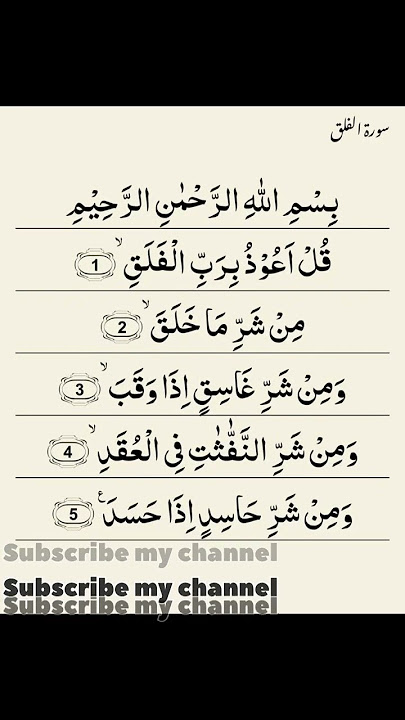 سورۃ الفلق
بِسْمِ اللهِ الرَّحْمٰنِ الرَّحِيْمِ
قُلْ اَعُوْذُ بِرَبِّ الْفَلَقِ ۙ 1
مِنْ شَرِّ مَا خَلَقَ ۙ 2
وَمِنْ شَرِّ غَاسِقٍ اِذَا وَقَبَ ۙ 3
وَمِنْ شَرِّ النَّفّٰثٰتِ فِي الْعُقَدِ ۙ 4
وَمِنْ شَرِّ حَاسِدٍ اِذَا حَسَدَ ۧ 5
Subscribe my channel
Subscribe my channel
Subscribe my channel